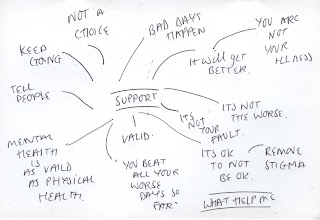 NOT A
CHOICE
BAD DAYS
HAPPEN
YOU ARE
NOT
YOUR
ILLNESS
KEEP
GOING
IT WILL GET
BETTER.
TELL
PEOPLE
SUPPORT
ITS NOT
THE WORSE.
ITS
NOT
YOUR
FAULT.
MENTAL
HEALTH
IS
AS VAILD
AS PHYSICAL
HEALTH.
I
VALID.
YOU BEAT
ALL YOUR
WORSE
DAYS SO
FAR.
ITS OK
TO NOT
BE OK.
REMOVE
STIGMA
WHAT HELP ME